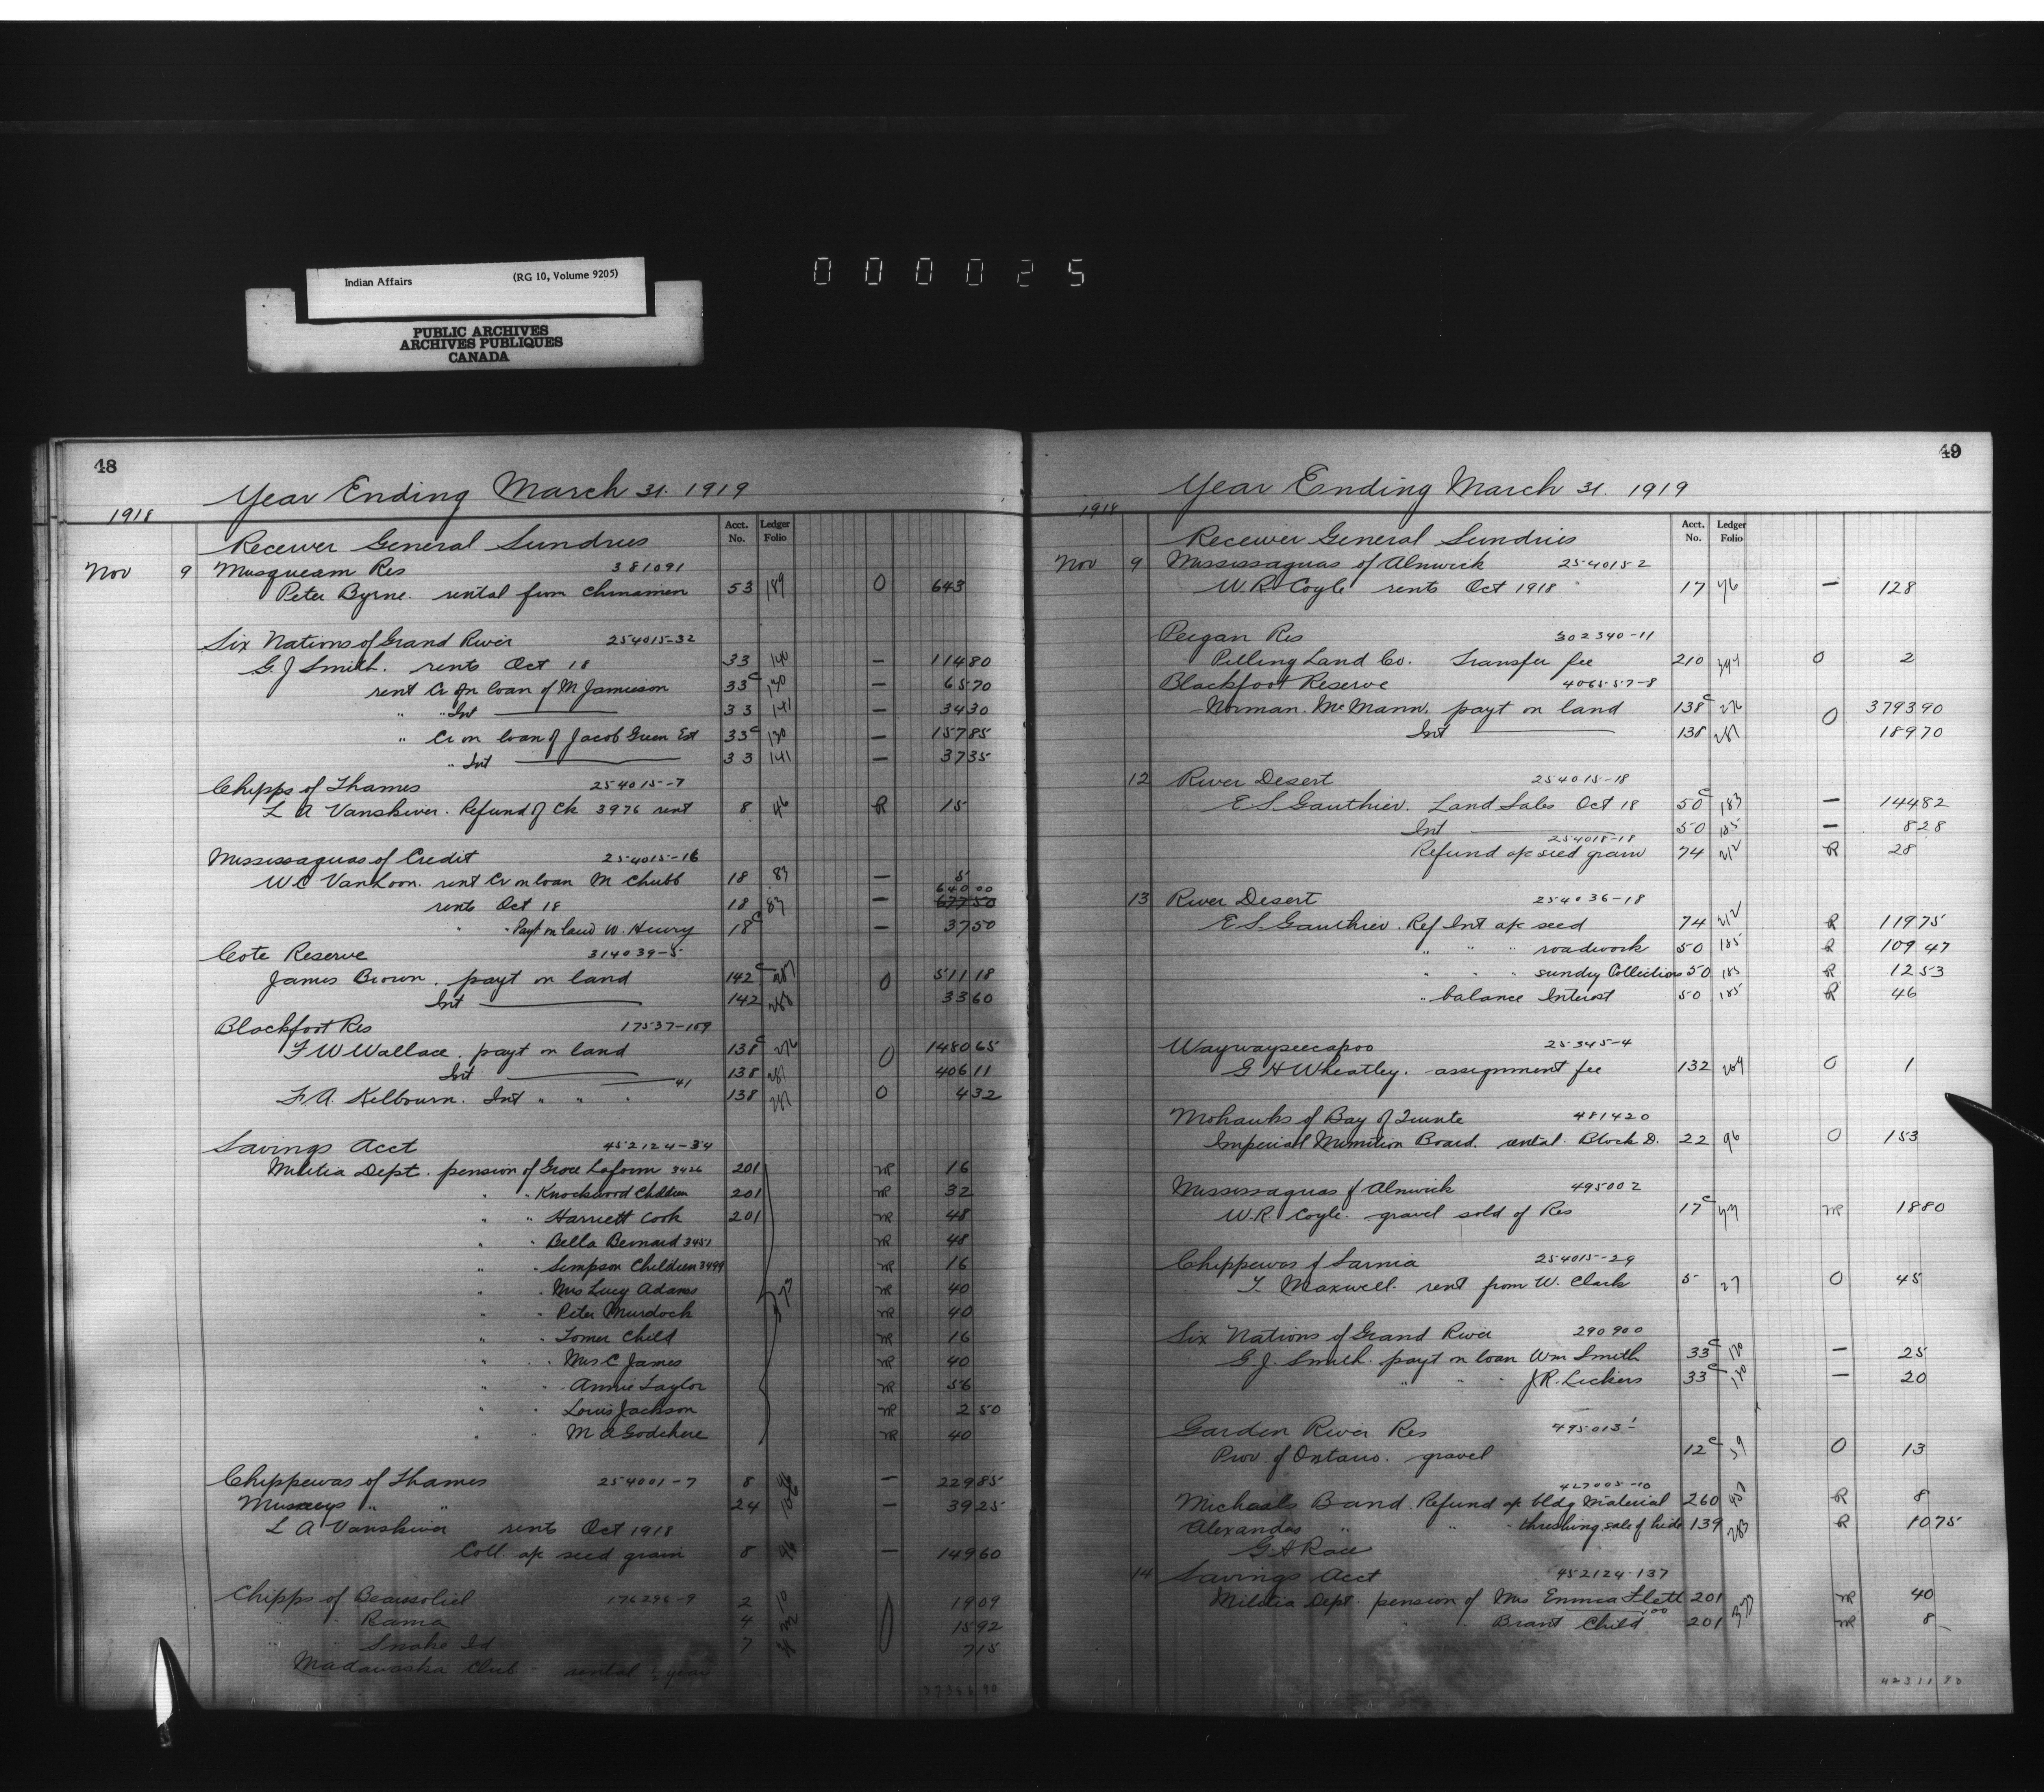 Indian Affairs (RG 10, Volume 9205)
000025
PUBLIC ARCHIVES
ARCHIVES PUBLIQUES
CANADA
48
Year Ending March 31. 1919
1918
Acct. No. Ledger Folio
Receiver General Sundries
Nov 9 Musqueam Res 381091
Peter Byrne. rental from Chinamen 53 189 O 643
Six Nations of Grand River 254015-32
G. J Smith. rents Oct 18 33 140 — 114 80
rent Cr on loan of M Jamieson 33c 130 — 65 70
" " Int 33 141 — 34 30
" Cr on loan of Jacob Green Est 33c 130 — 157 85
" Int 33 141 — 37 35
Chipps of Thames 254015-7
L A Vanskiver. Refund of Ck 3976 rent 8 46 R 15
Mississaguas of Credit 254015-16
W C VanLoon. rent Cr on loan M Chubb 18 83 — 5
640 00
rents Oct 18 18 83 — 677 50
" Payt on land W. Henry 18c — 37 50
Cote Reserve 314039-5
James Brown. payt on land 142c 287 O 511 18
Int 142 288 33 60
Blackfoot Res 17537-109
F W Wallace. payt on land 138c 276 O 1480 65
Int 138 281 406 11
F. A. Kilbourn. Int " " " 41 138 281 O 4 32
Savings Acct 452124-34
Militia Dept. pension of Grace Laform 3426 201 NR 16
" " Knockwood Children 201 NR 32
" " Harriett Cook 201 NR 48
" " Bella Bernard 3451 NR 48
" " Simpson Children 3499 NR 16
" " Mrs Lucy Adams 373 NR 40
" " Peter Murdock NR 40
" " Tomer Child NR 16
" " Mrs C James NR 40
" " Annie Taylor NR 56
" " Louis Jackson NR 2 50
" " M A Godchere NR 40
Chippewas of Thames 254001-7 8 46 — 229 85
Munceys " " 24 106 — 39 25
L A Vanskiver rents Oct 1918
Coll. a/c seed grain 8 46 — 149 60
Chipps of Beausoliel 176296-9 2 10 19 09
" Rama 4 O 15 92
" Snake Id 7 7 15
Madawaska Club rental ½ year
49
Year Ending March 31. 1919
1918
Acct. No. Ledger Folio
Receiver General Sundries
Nov 9 Mississaguas of Alnwick 254015-2
W. R Coyle rents Oct 1918 17 76 — 128
Peigan Res 302340-11
Pilling Land Co. Transfer fee 210 394 O 2
Blackfoot Reserve 406557-8
Norman. McMann. payt on land 138c 276 O 3793 90
Int 138 281 189 70
12 River Desert 254015-18
E S Gauthier. Land Sales Oct 18 50c 183 — 144 82
Int 50 185 — 8 28
254018-18
Refund a/c seed grain 74 212 R 28
13 River Desert 254036-18
E. S. Gauthier. Ref Int a/c seed 74 212 R 119 75
" " " roadwork 50 185 R 109 47
" " " sundry Collections 50 185 R 12 53
" balance Interest 50 185 R 46
Waywayseecapoo 25345-4
G H Wheatley. assignment fee 132 269 O 1
Mohawks of Bay of Quinte 481420
Imperial Munition Board. rental Block D. 22 96 O 153
Mississaguas of Alnwick 495002
W. R. Coyle. gravel sold of Res 17c NR 18 80
Chippewas of Sarnia 254015-29
T. Maxwell. rent from W. Clark 5 27 O 45
Six Nations of Grand River 290900
G. J. Smith. payt on loan Wm Smith 33c 130 — 25
" " " J. R. Lickers 33c 130 — 20
Garden River Res 495013-1
Prov. of Ontario. gravel 12c 59 O 13
427005-10
Michaels Band. Refund a/c bldg Material 260 457 R 8
Alexanders " " " threshing, sale of hide 139 283 R 10 75
G. H Race
14 Savings Acct 452124-137
Militia Dept. pension of Mrs Emma Flett 201 373 NR 40
" " Brant Child 201 NR 8